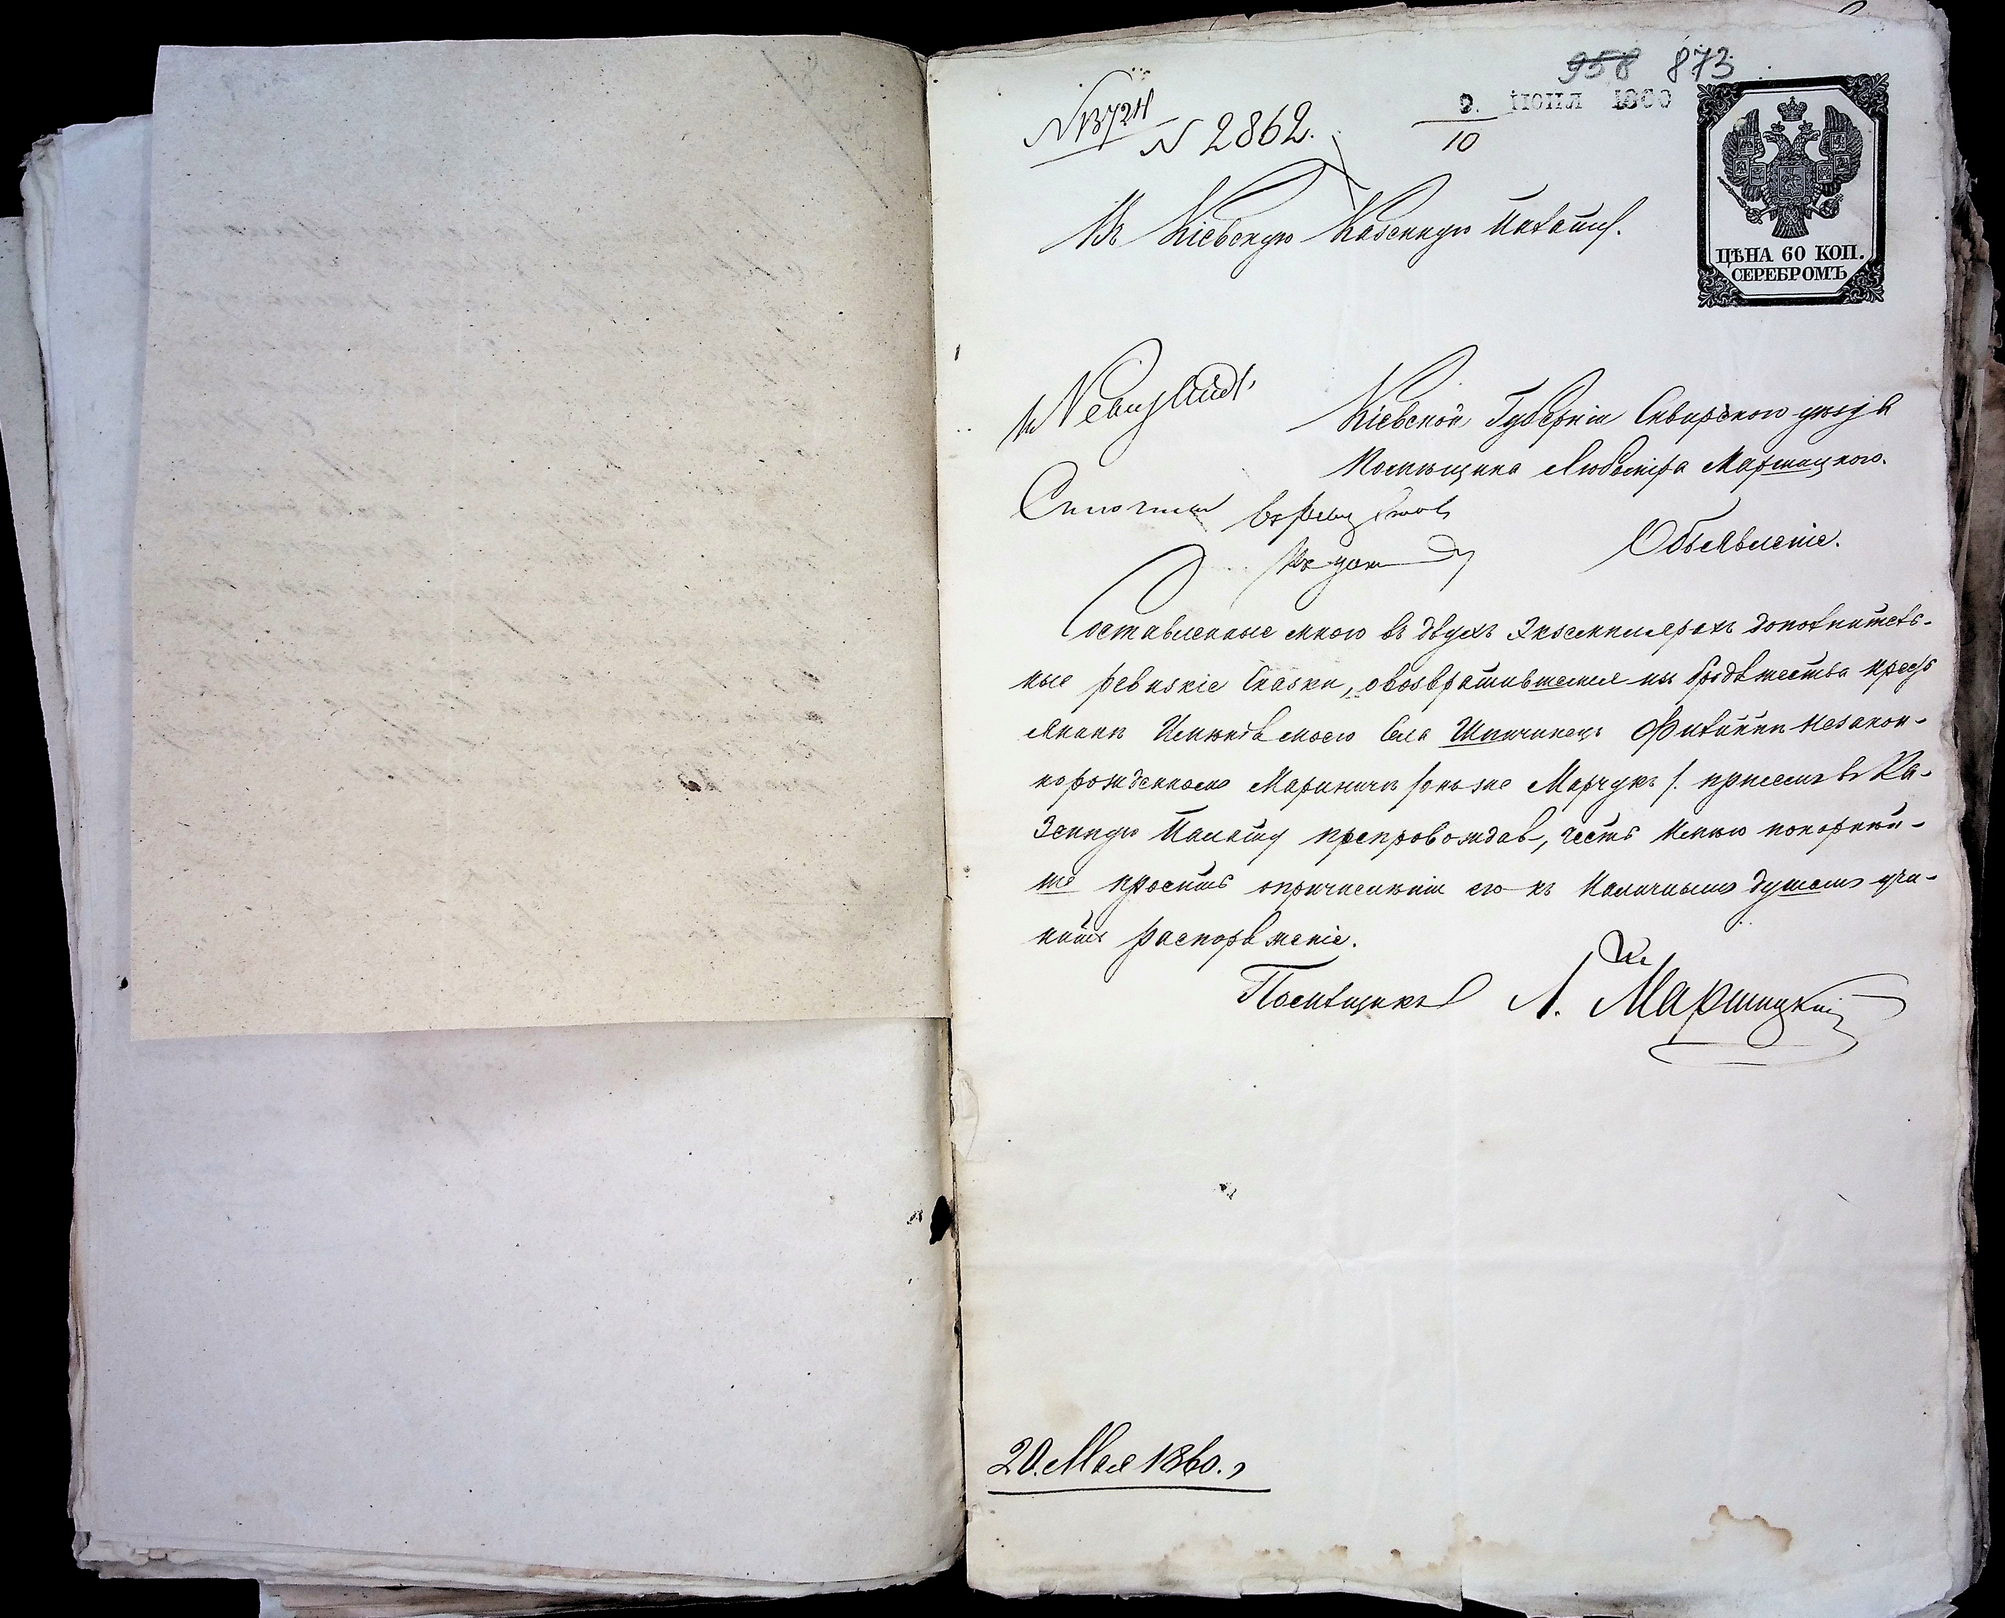 958 873
9. ІЮНЯ 1860
10
№ 2862.
ЦѢНА 60 КОП.
СЕРЕБРОМЪ
Въ Кіевскую Казенную Палату.
Кіевской Губерніи Сквирского уѣзда
Помѣщика Маршицкого.
Объявленіе.
Составленные мною въ двухъ Экземплярахъ дополнитель-
ные ревизкіе Сказки, о возвратившемся изъ бродяжества крестъ
янинѣ Имѣнія моего Села Шпичинецъ Филиппѣ незакон-
норожденномъ онъ же Марчукъ /. при семъ въ Ка-
зенную Палату препровождая, честь имѣю покорнѣй-
ше просить о причисленіи его къ наличнымъ душамъ учи-
нить распоряженіе.
Помѣщикъ Л. Маршицкій
20. Мая 1860. г